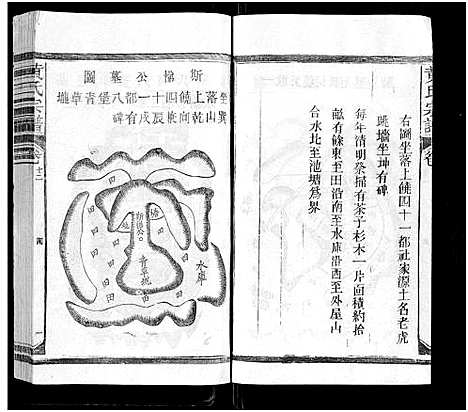 黃氏宗譜
右圖坐落上饒四十一都社家源土名老虎
跳墻坐坤有碑
每年清明祭掃有茶子杉木一片面積約拾
畝有餘東至田沿南至水庫沿西至外屋山
合水北至池塘為界
斯悌公墓圖
坐落上饒四十一都八堡青草壠
巽山乾向兼辰戌有碑
水庫
青草壠
田
田
田
田
田
田
黃氏宗譜